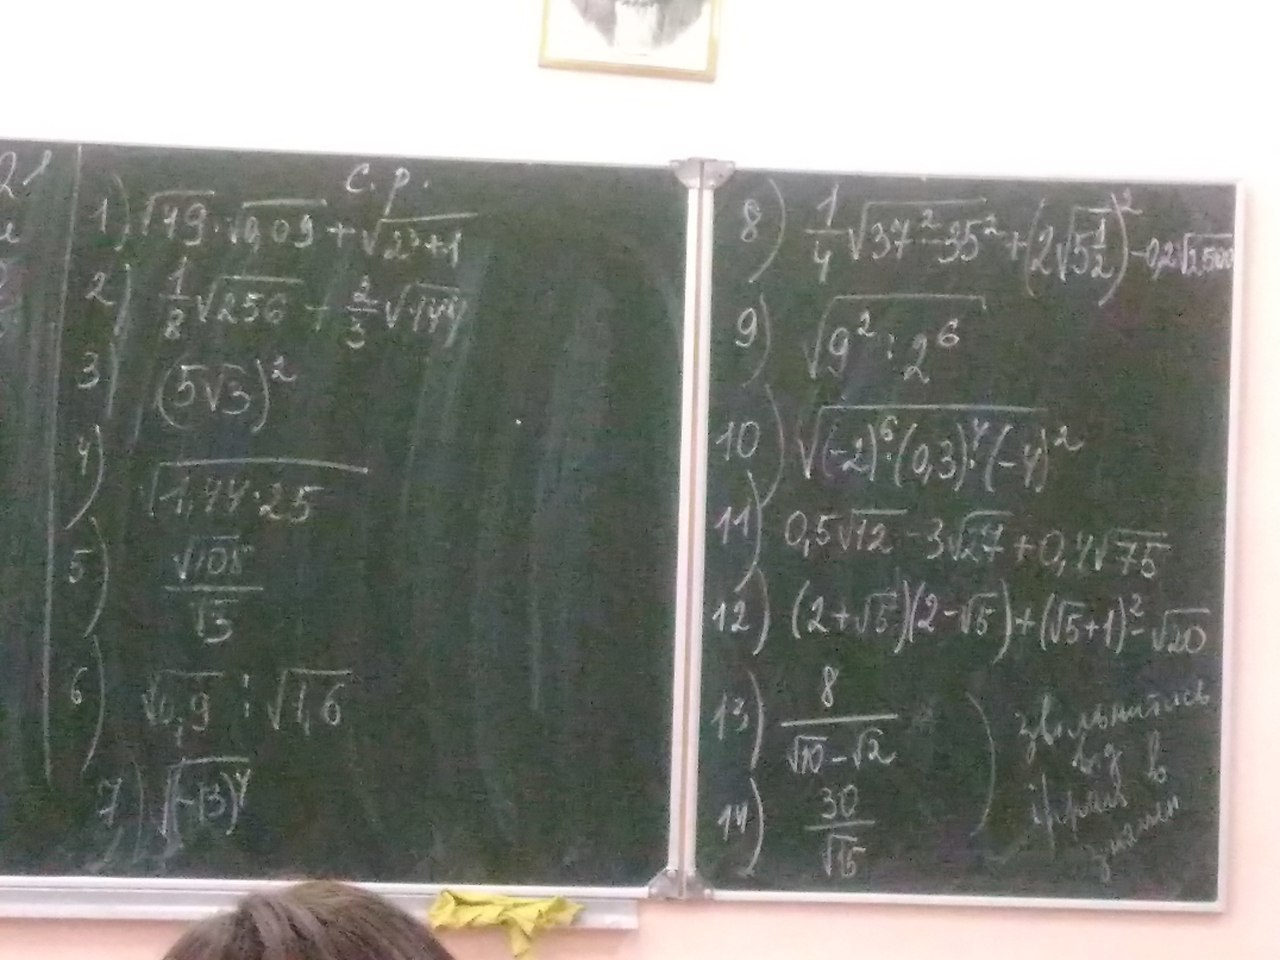 с. р.
1) √49 · √0,09 + √(2³+1)
2) 1/8 √256 + 2/3 √144
3) (5√3)²
4) √(1,44·25)
5) √108 / √3
6) √4,9 : √1,6
7) √(-13)⁴
8) 1/4 √(37²-35²) + (2√5 1/2)² - 0,2√2500
9) √(9² · 2⁶)
10) √((-2)⁶·(0,3)⁴·(-4)²)
11) 0,5√12 - 3√27 + 0,4√75
12) (2+√5)(2-√5)+(√5+1)²-√20
13) 8 / (√10 - √2)
14) 30 / √15
звільнитись
від
іррац в
знамен